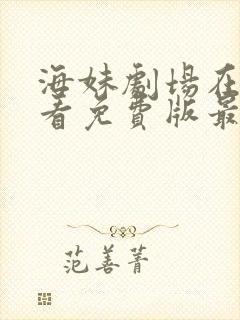 海妹劇場在
看免費版最
范善菁